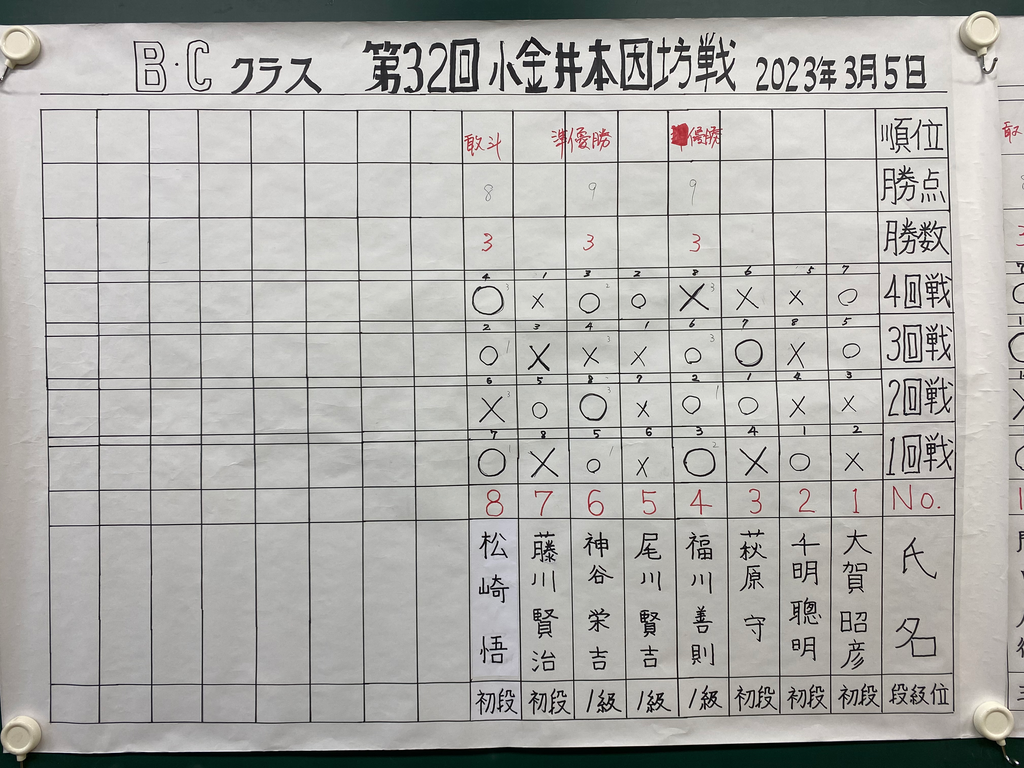 B・Cクラス 第32回小金井本因坊戦 2023年3月5日
敢斗 準優勝 優勝 順位
8 9 9 勝点
3 3 3 勝数
4 1 3 2 8 6 5 7
○3 × ○2 ○ ×3 × × ○ 4回戦
2 3 4 1 6 7 8 5
○1 × ×3 × ○3 ○ × ○ 3回戦
6 5 8 7 2 1 4 3
×3 ○ ○3 × ○1 ○ × × 2回戦
7 8 5 6 3 4 1 2
○1 × ○1 × ○2 × ○ × 1回戦
8 7 6 5 4 3 2 1 No.
松崎 悟 藤川賢治 神谷栄吉 尾川賢吉 福川善則 萩原 守 千明聰明 大賀昭彦 氏名
初段 初段 1級 1級 1級 初段 初段 初段 段級位